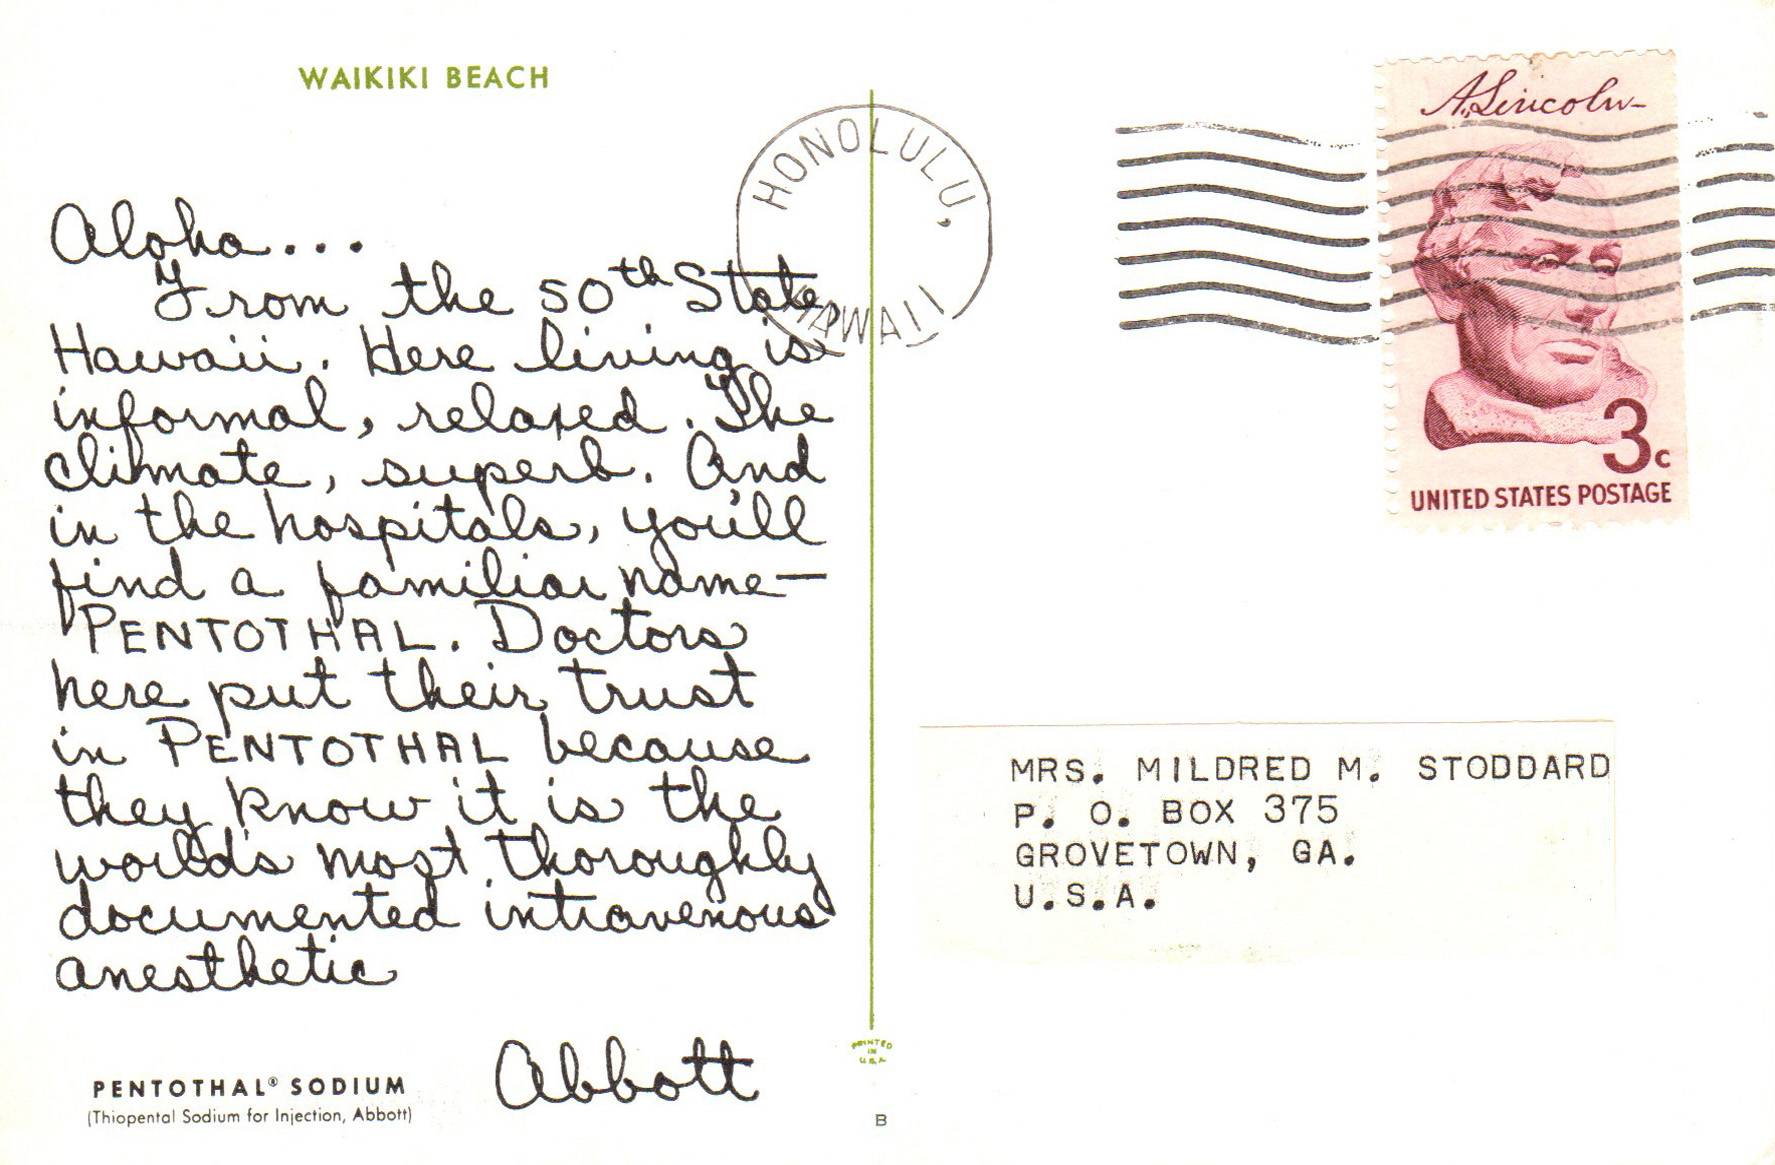 WAIKIKI BEACH
Aloha...
From the 50th State,
Hawaii. Here living is
informal, relaxed. The
climate, superb. And
in the hospitals, you'll
find a familiar name—
PENTOTHAL. Doctors
here put their trust
in PENTOTHAL because
they know it is the
world's most thoroughly
documented intravenous
anesthetic
Abbott
PENTOTHAL® SODIUM
(Thiopental Sodium for Injection, Abbott)
HONOLULU,
HAWAII
PRINTED
IN
U.S.A.
B
A. Lincoln
3c
UNITED STATES POSTAGE
MRS. MILDRED M. STODDARD
P. O. BOX 375
GROVETOWN, GA.
U.S.A.